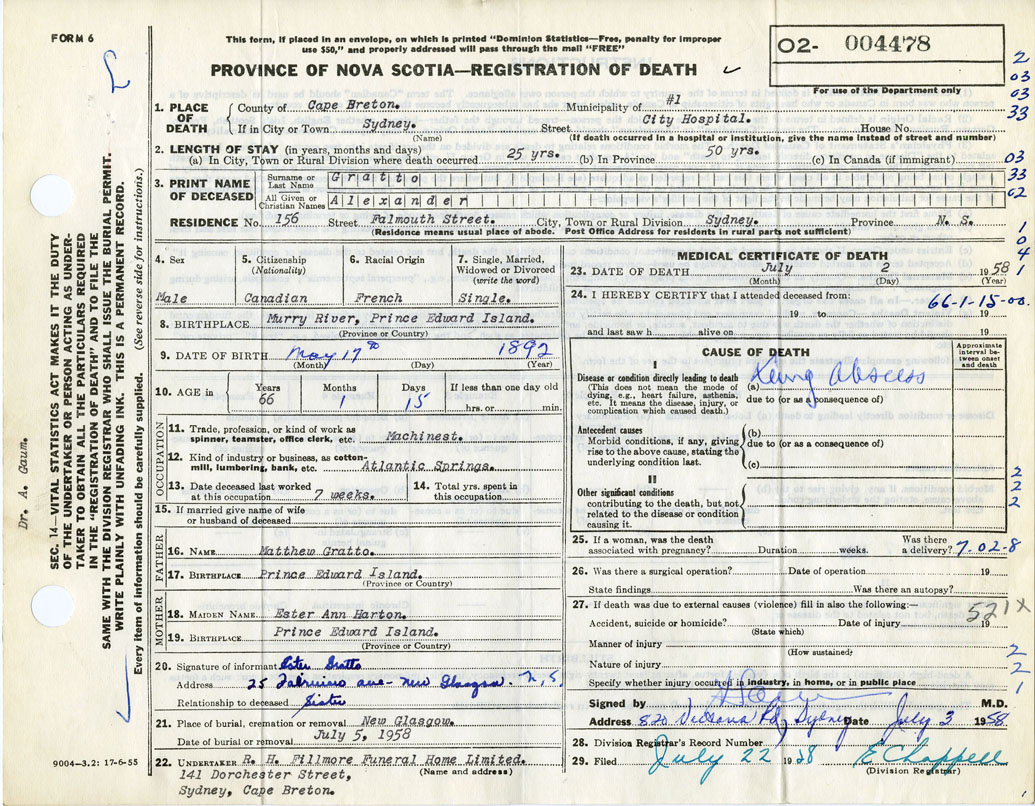 FORM 6
This form, if placed in an envelope, on which is printed "Dominion Statistics—Free, penalty for improper
use $50," and properly addressed will pass through the mail "FREE"
PROVINCE OF NOVA SCOTIA—REGISTRATION OF DEATH
O2- 004478
For use of the Department only
2
03
03
33
1. PLACE OF DEATH
County of Cape Breton. Municipality of #1
If in City or Town Sydney. Street City Hospital. House No.
(Name) (If death occurred in a hospital or institution, give the name instead of street and number)
2. LENGTH OF STAY (in years, months and days)
(a) In City, Town or Rural Division where death occurred 25 yrs. (b) In Province 50 yrs. (c) In Canada (if immigrant)
03
33
02
3. PRINT NAME OF DECEASED
Surname or Last Name Gratto
All Given or Christian Names Alexander
RESIDENCE No. 156 Street Falmouth Street. City, Town or Rural Division Sydney. Province N. S.
(Residence means usual place of abode. Post Office Address for residents in rural parts not sufficient)
1
0
4
1
4. Sex
Male
5. Citizenship
(Nationality)
Canadian
6. Racial Origin
French
7. Single, Married,
Widowed or Divorced
(write the word)
Single.
8. BIRTHPLACE Murry River, Prince Edward Island.
(Province or Country)
9. DATE OF BIRTH May 17th 1892
(Month) (Day) (Year)
10. AGE in Years 66 Months 1 Days 15 If less than one day old
hrs. or min.
OCCUPATION
11. Trade, profession, or kind of work as
spinner, teamster, office clerk, etc. Machinest.
12. Kind of industry or business, as cotton-
mill, lumbering, bank, etc. Atlantic Springs.
13. Date deceased last worked
at this occupation 7 weeks.
14. Total yrs. spent in
this occupation
15. If married give name of wife
or husband of deceased
FATHER
16. NAME Matthew Gratto.
17. BIRTHPLACE Prince Edward Island.
(Province or Country)
MOTHER
18. MAIDEN NAME Ester Ann Harton.
19. BIRTHPLACE Prince Edward Island.
(Province or Country)
20. Signature of informant Gratto
Address 25 ave - New Glasgow. N, S.
Relationship to deceased Sister
21. Place of burial, cremation or removal New Glasgow.
Date of burial or removal July 5, 1958
22. UNDERTAKER R. H. Fillmore Funeral Home Limited.
(Name and address)
141 Dorchester Street,
Sydney, Cape Breton.
MEDICAL CERTIFICATE OF DEATH
23. DATE OF DEATH July 2 1958
(Month) (Day) (Year)
24. I HEREBY CERTIFY that I attended deceased from:
66-1-15-00.
19 to 19
and last saw h alive on 19
CAUSE OF DEATH
Approximate
interval be-
tween onset
and death
I
Disease or condition directly leading to death
(This does not mean the mode of
dying, e.g., heart failure, asthenia,
etc. It means the disease, injury, or
complication which caused death.)
(a) Lung Abscess
due to (or as a consequence of)
Antecedent causes
Morbid conditions, if any, giving
rise to the above cause, stating the
underlying condition last.
(b)
due to (or as a consequence of)
(c)
II
Other significant conditions
contributing to the death, but not
related to the disease or condition
causing it.
2
2
2
25. If a woman, was the death
associated with pregnancy? Duration weeks. Was there
a delivery? 7-02-8
26. Was there a surgical operation? Date of operation 19
State findings Was there an autopsy?
27. If death was due to external causes (violence) fill in also the following:—
521X
Accident, suicide or homicide? Date of injury 19
(State which)
Manner of injury
(How sustained)
Nature of injury
Specify whether injury occurred in industry, in home, or in public place
2
2
1
Signed by M.D.
Address 820 Victoria Rd, Sydney Date July 3 1958.
28. Division Registrar's Record Number
29. Filed July 22 1958 E Chappell
(Division Registrar)
9004-3.2: 17-6-55
Dr. A. Gaum.
SEC. 14—VITAL STATISTICS ACT MAKES IT THE DUTY
OF THE UNDERTAKER OR PERSON ACTING AS UNDER-
TAKER TO OBTAIN ALL THE PARTICULARS REQUIRED
IN THE "REGISTRATION OF DEATH" AND TO FILE THE
SAME WITH THE DIVISION REGISTRAR WHO SHALL ISSUE THE BURIAL PERMIT.
WRITE PLAINLY WITH UNFADING INK. THIS IS A PERMANENT RECORD.
Every item of information should be carefully supplied. (See reverse side for instructions.)